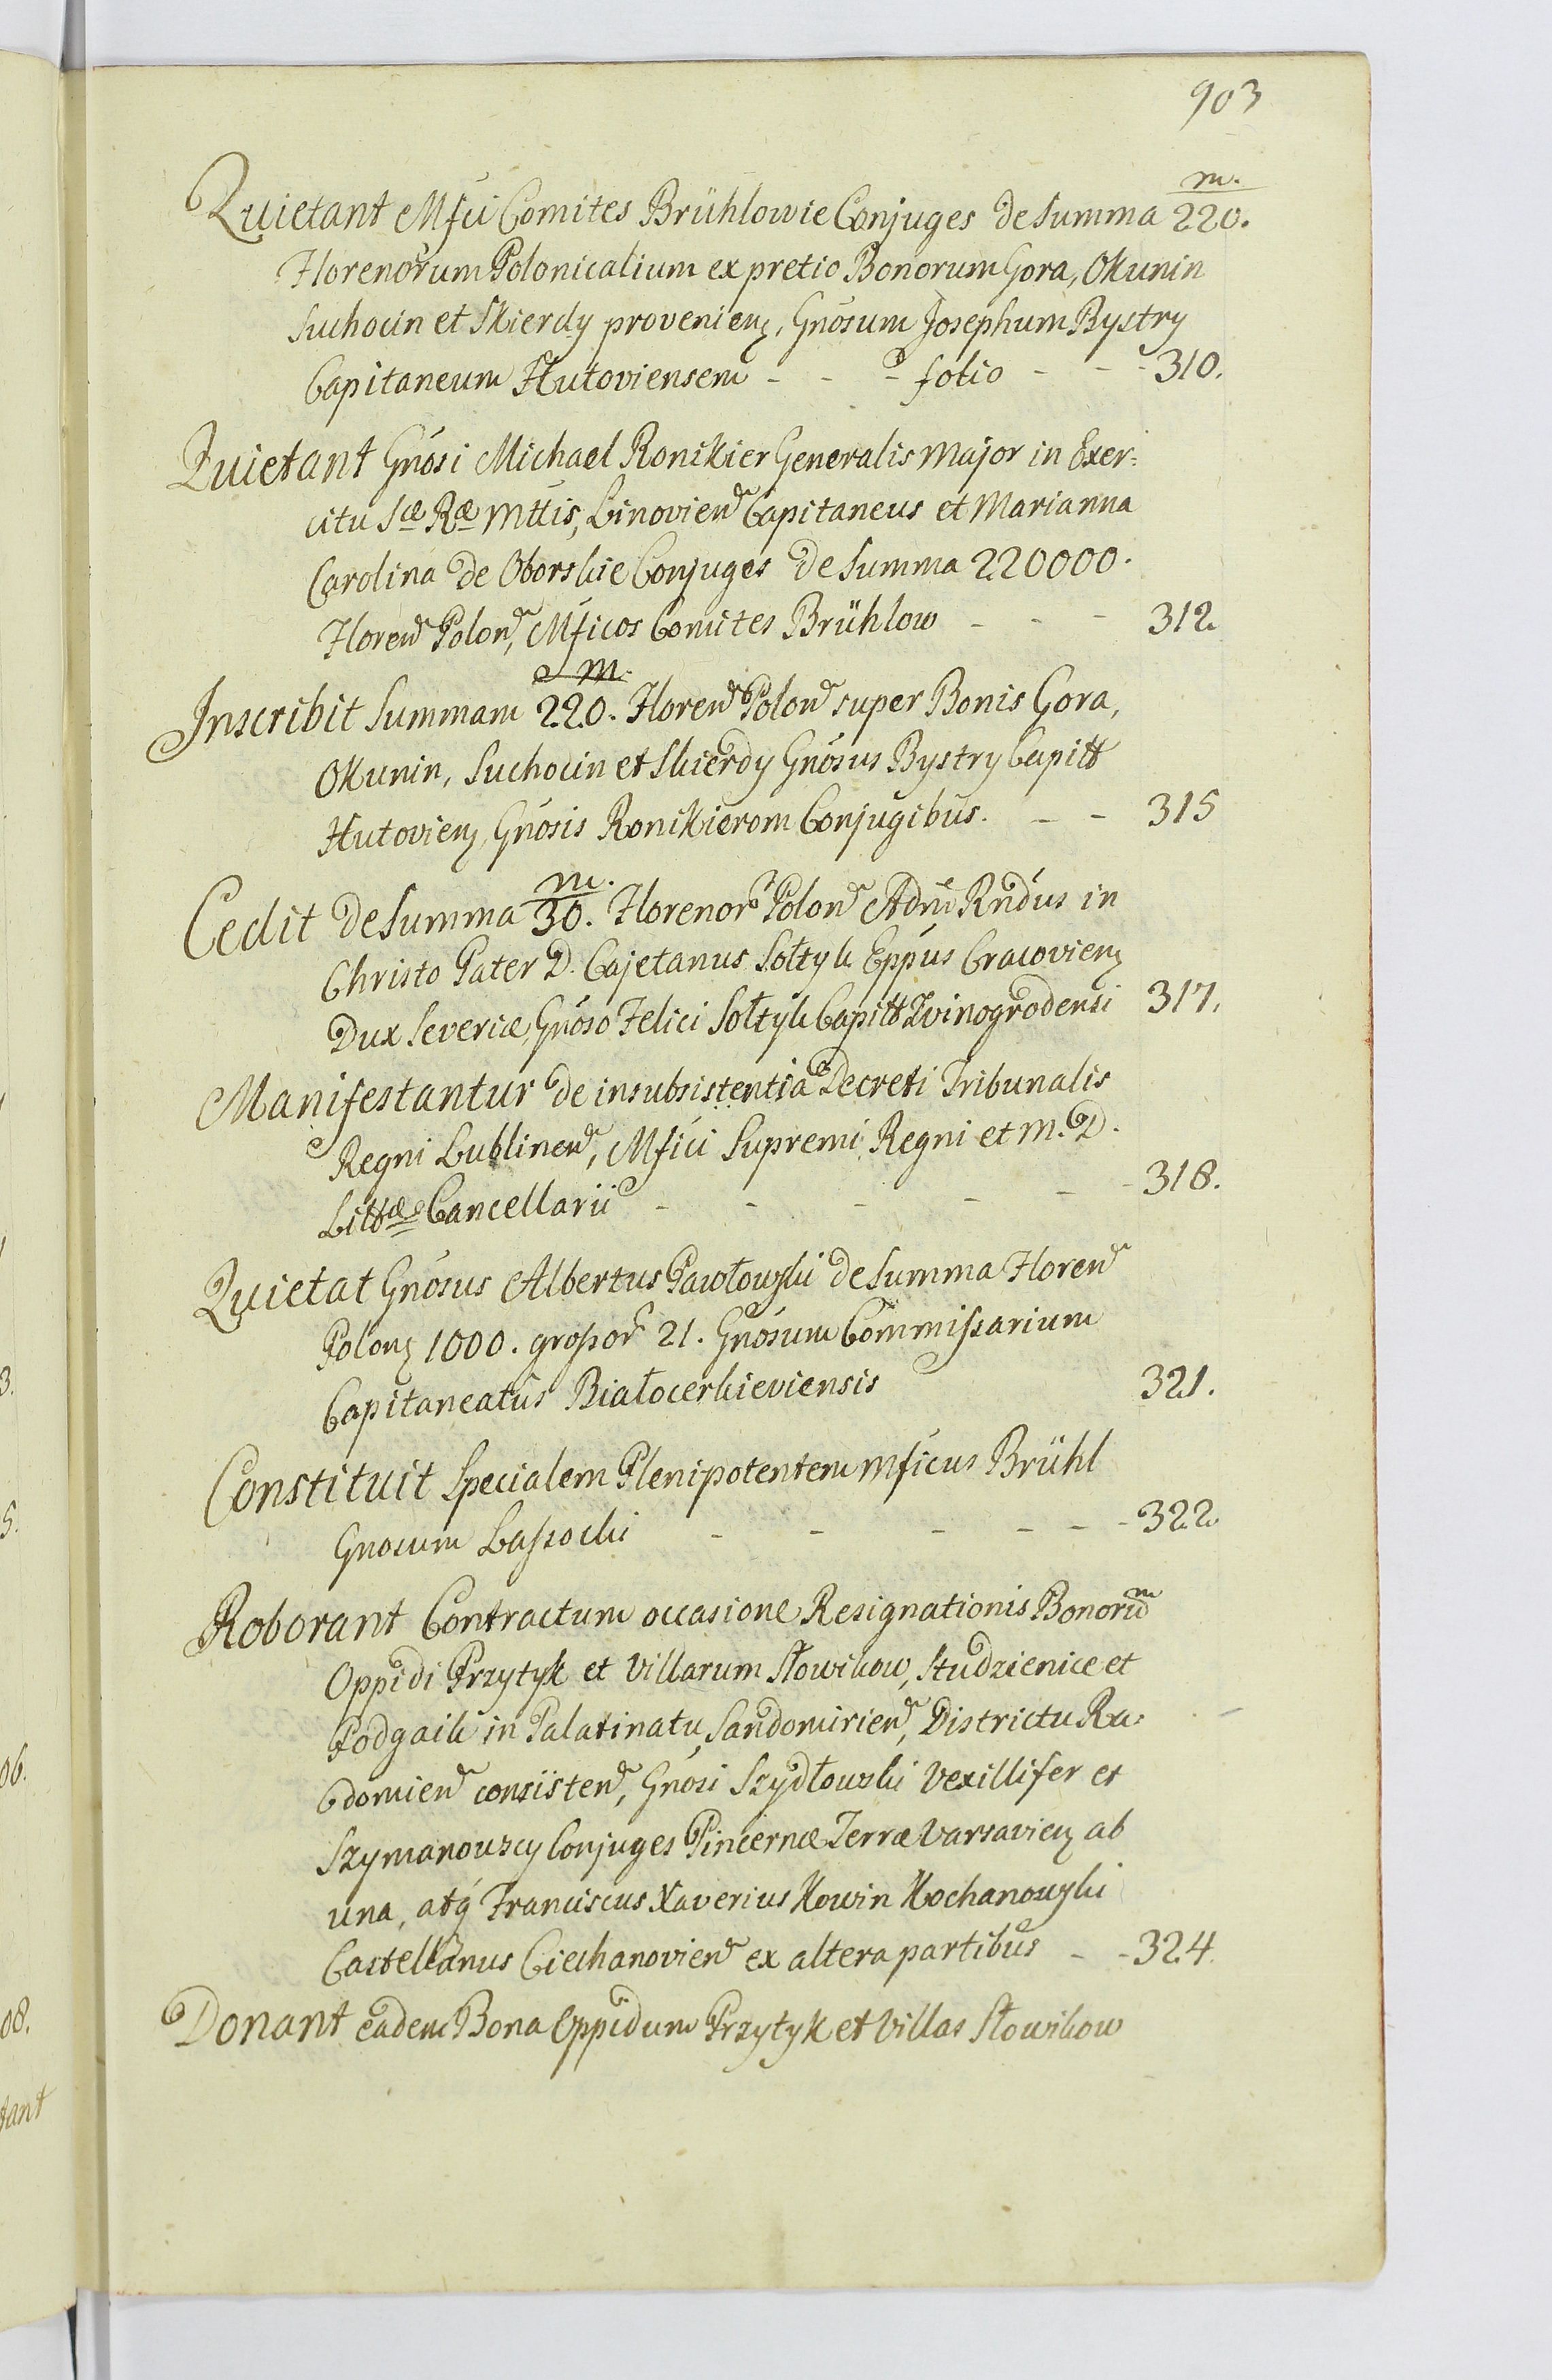 903
Quietant Mfici Comites Brühlowie Conjuges de Summa 220.
m.
Florenorum Polonicalium ex pretio Bonorum Gora, Okunin
Suchocin et Skierdy provenienȝ, Gnosum Josephum Bystry
Capitaneum Hutoviensem - - - folio - - - 310.
Quietant Gnosi Michael Ronikier Generalis Major in Exer:
citu Sæ Ræ Mttis, Linovien Capitaneus et Marianna
Carolina de Oborskie Conjuges de Summa 220000.
Floren Polon, Mficos Comites Brühlow - - - 312.
m.
Inscribit Summam 220. Floren Polon super Bonis Gora,
Okunin, Suchocin et Skierdy Gnosus Bystry Capitt
Hutovienȝ, Gnosis Ronikierom Conjugibus. - - 315
m.
Cedit de Summa 30. Florenor Polon Adm Rndus in
Christo Pater D. Cajetanus Sołtyk Eppus Cracovienȝ
Dux Severiæ, Gnoso Felici Sołtyk Capitt Zvinogrodensi 317.
Manifestantur de insubsistentia Decreti Tribunalis
Regni Lublinen, Mfici Supremi Regni et M. D.
Littæ Cancellarii - - - - - - 318.
Quietat Gnosus Albertus Pawłowski de Summa Floren
Polonȝ 1000. grossor 21. Gnosum Commissarium
Capitaneatus Białocerkieviensis 321.
Constituit Specialem Plenipotentem Mficus Brühl
Gnosum Lassocki - - - - - - 322.
Roborant Contractum occasione Resignationis Bonorum
Oppidi Przytyk et Villarum Słowikow, Studzienice et
Podgaik in Palatinatu Sandomirien, Districtu Ra:
domien consisten, Gnosi Szydłowski Vexillifer et
Szymanowscy Conjuges Pincernæ Terræ Varsavienȝ ab
una, atq Franciscus Xaverius Kowin Kochanowski
Castellanus Ciechanovien ex altera partibus - - 324.
Donant eadem Bona Oppidum Przytyk et Villas Słowikow